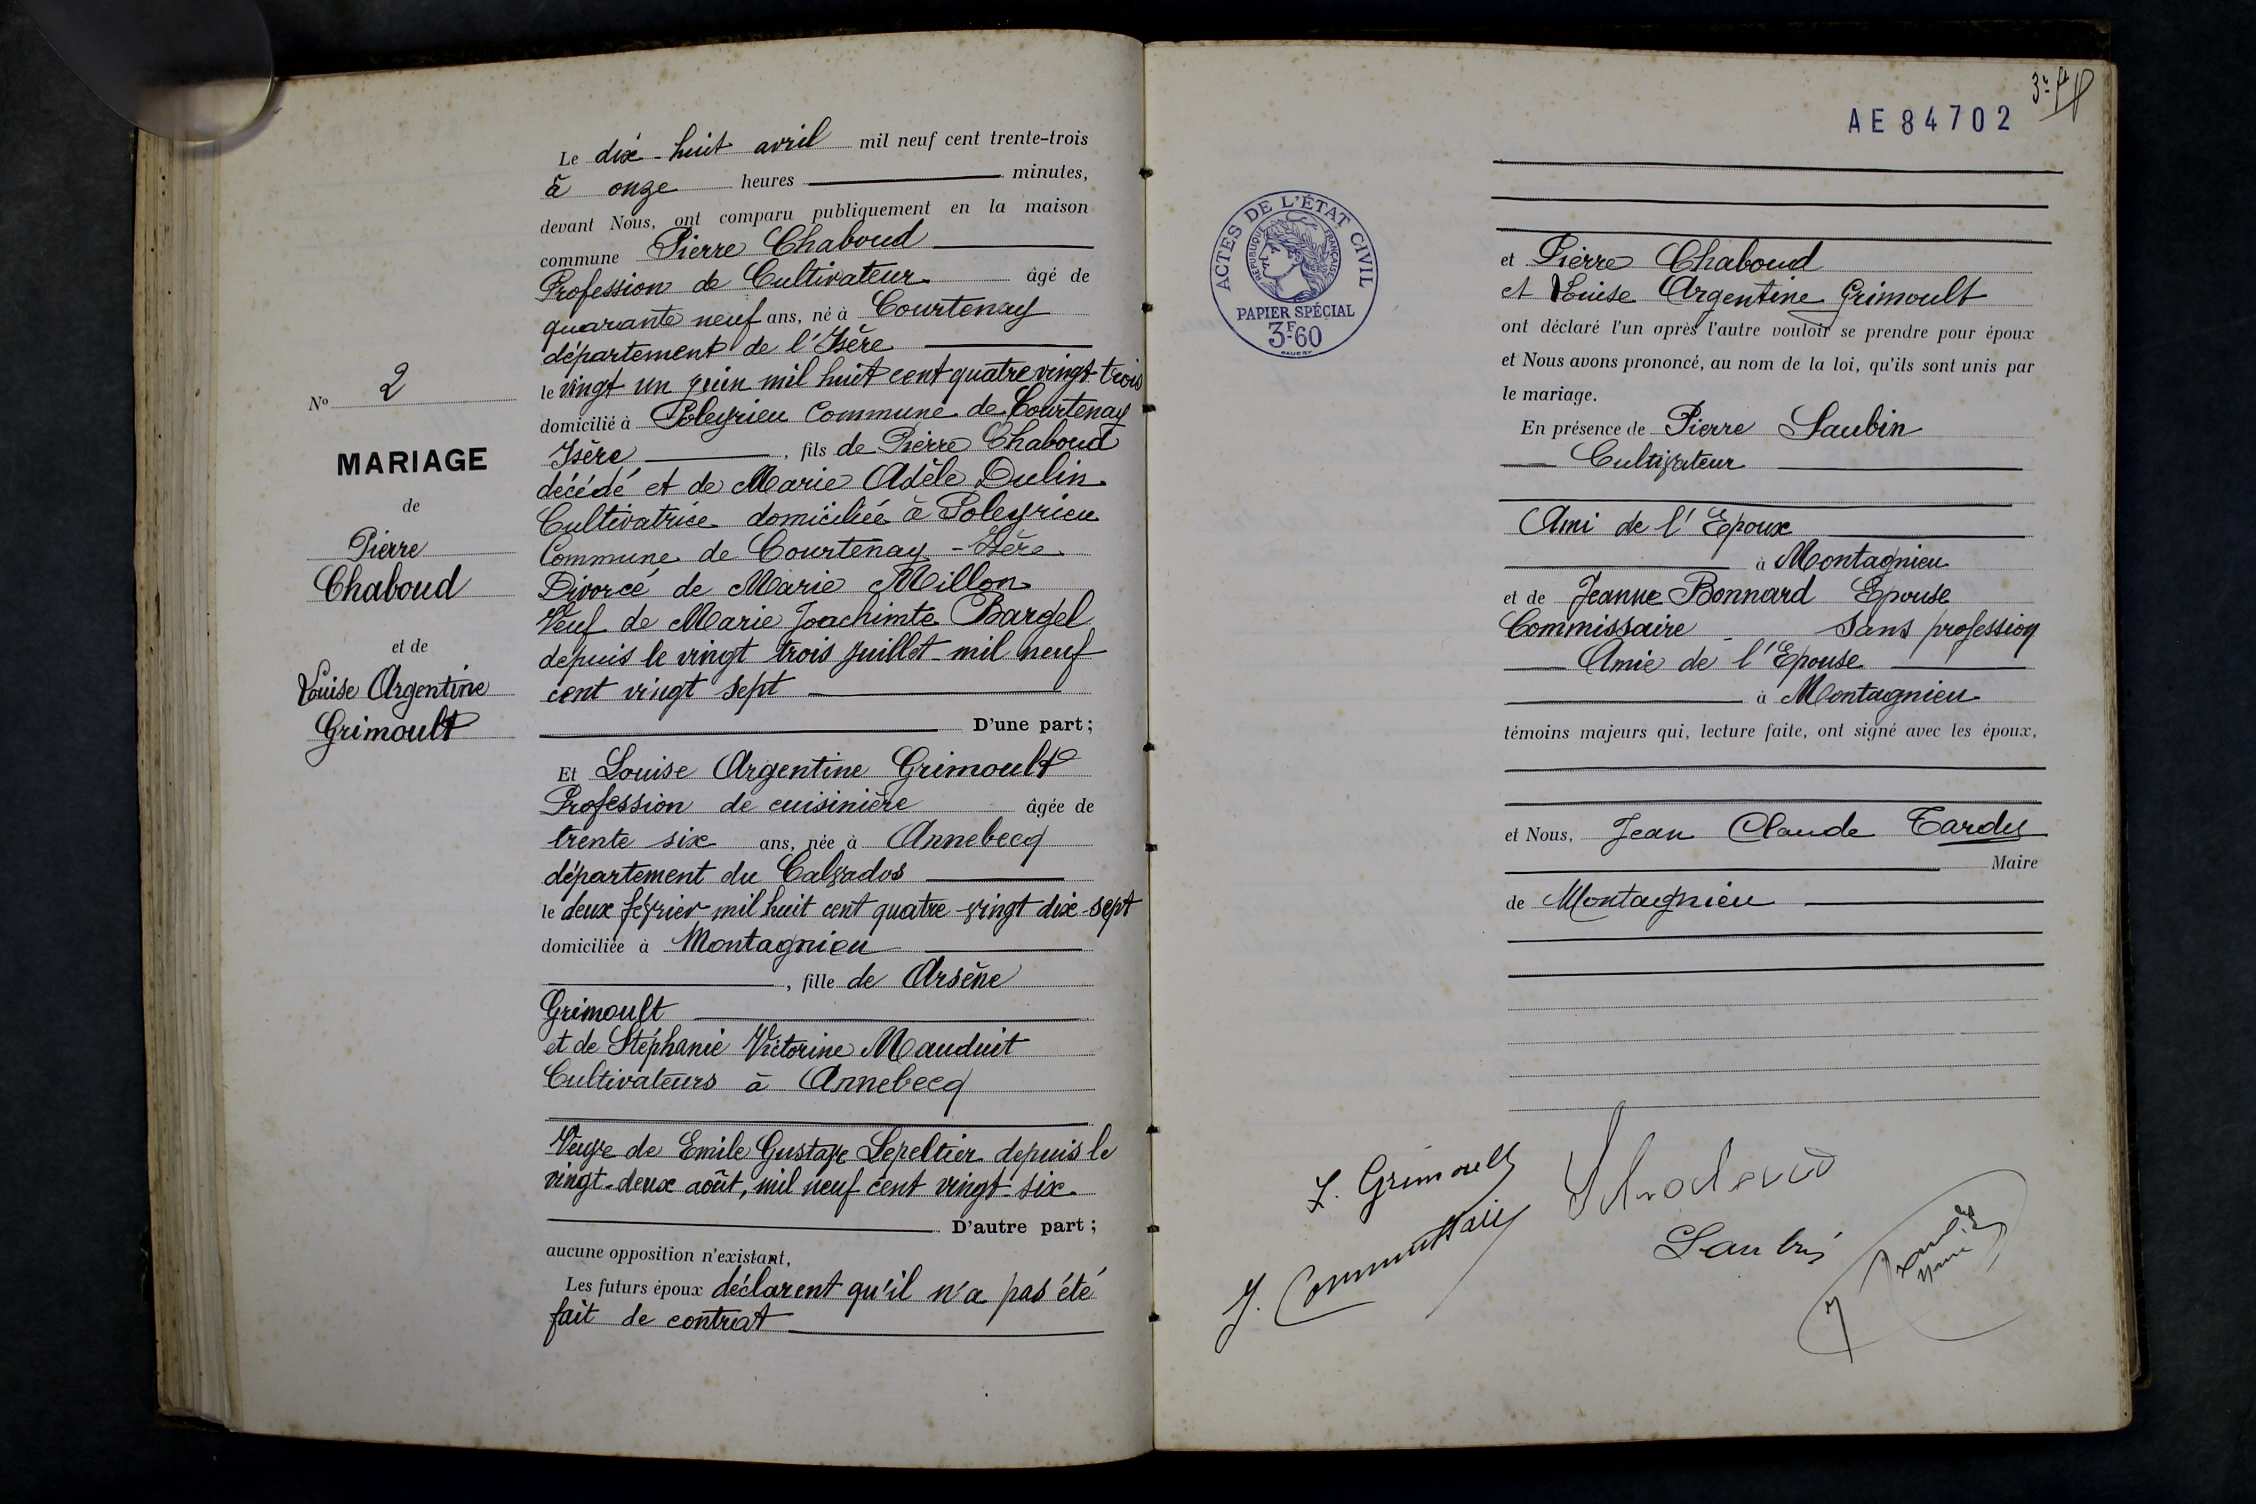 Le dix-huit avril mil neuf cent trente-trois
à onze heures minutes,
devant Nous, ont comparu publiquement en la maison
commune Pierre Chaboud
Profession de Cultivateur âgé de
quarante neuf ans, né à Courtenay
département de l'Isère
le vingt un juin mil huit cent quatre vingt-trois
domicilié à Poleyrieu Commune de Courtenay
Isère , fils de Pierre Chaboud
décédé et de Marie Adèle Dulin
Cultivatrice domiciliée à Poleyrieu
Commune de Courtenay - Isère
Divorcé de Marie Millon
Veuf de Marie Joachimte Bargel
depuis le vingt trois juillet mil neuf
cent vingt sept
D'une part;
Et Louise Argentine Grimoult
Profession de cuisinière âgée de
trente six ans, née à Annebecq
département du Calvados
le deux février mil huit cent quatre-vingt dix-sept
domiciliée à Montagnieu
, fille de Arsène
Grimoult
et de Stéphanie Victorine Mauduit
Cultivateurs à Annebecq
Veuve de Emile Gustave Lepeltier depuis le
vingt-deux août, mil neuf cent vingt-six
D'autre part;
aucune opposition n'existant,
Les futurs époux déclarent qu'il n'a pas été
fait de contrat
No 2
MARIAGE
de
Pierre
Chaboud
et de
Louise Argentine
Grimoult
AE 84702
ACTES DE L'ÉTAT CIVIL
RÉPUBLIQUE FRANÇAISE
PAPIER SPÉCIAL
3F60
et Pierre Chaboud
et Louise Argentine Grimoult
ont déclaré l'un après l'autre vouloir se prendre pour époux
et Nous avons prononcé, au nom de la loi, qu'ils sont unis par
le mariage.
En présence de Pierre Saubin
Cultivateur
Ami de l'Epoux
à Montagnieu
et de Jeanne Bonnard Epouse
Commissaire - sans profession
Amie de l'Epouse
à Montagnieu
témoins majeurs qui, lecture faite, ont signé avec les époux,
et Nous, Jean Claude Tardy
Maire
de Montagnieu
L. Grimoult
J. Commissaire
Saubin